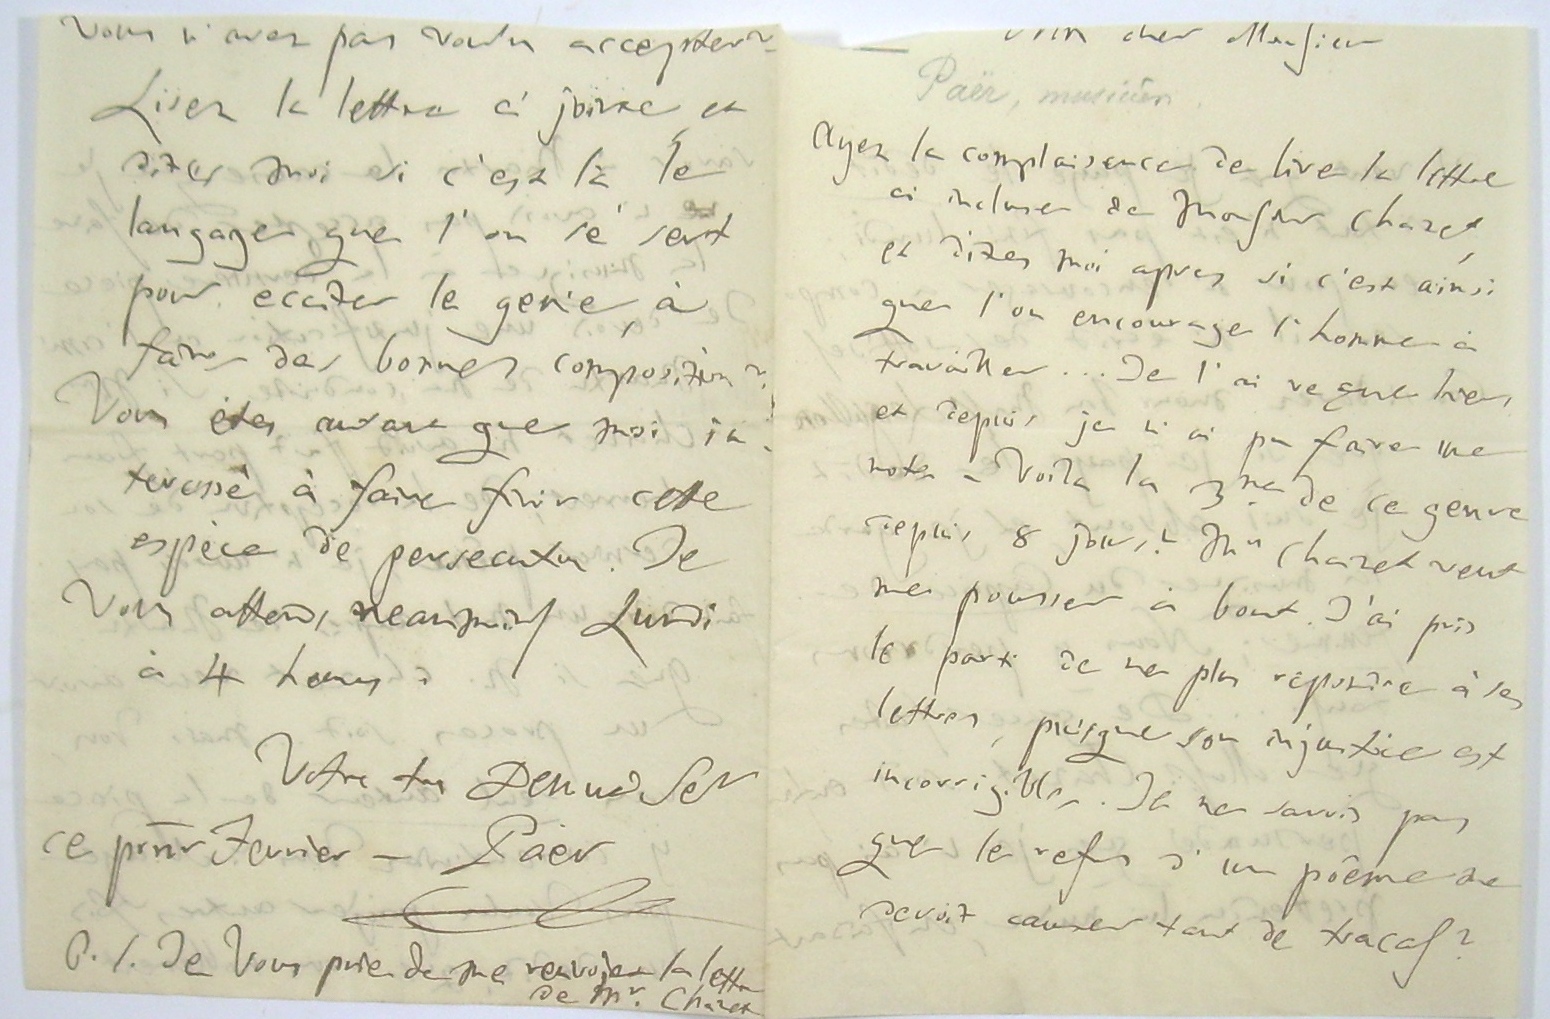 Mon cher Monsieur
Paër, musicien.
Ayez la complaisence de lire la lettre
ci incluse de Monsieur Chazet,
et dites moi apres si c'est ainsi
que l'on encourage l'homme à
travailler... Je l'ai reçue hier,
et depuis je n'ai pu faire une
note - Voila la 3me de ce genre
depuis 8 jours! Mr Chazet veut
me pousser à bout. J'ai pris
le parti de ne plus repondre à ses
lettres, puisque son injustice est
incorrigible. Je ne savois pas
que le refus d'un poême me
devoit causer tant de tracas?
Vous n'avez pas voulu accepter?
Lisez la lettre ci jointe et
dites moi si c'est là le
langage que l'on se sert
pour exciter le genie, à
faire des bonnes compositions.
Vous êtes autant que moi in-
teressé à faire finir cette
espèce de persecution. Je
Vous attends neanmoins Lundi
à 4 heures
Votre tres Devoué Ser
ce premr Fevrier - Paër
P.S. Je Vous prie de me renvoyer la lettre
de Mr. Chazet